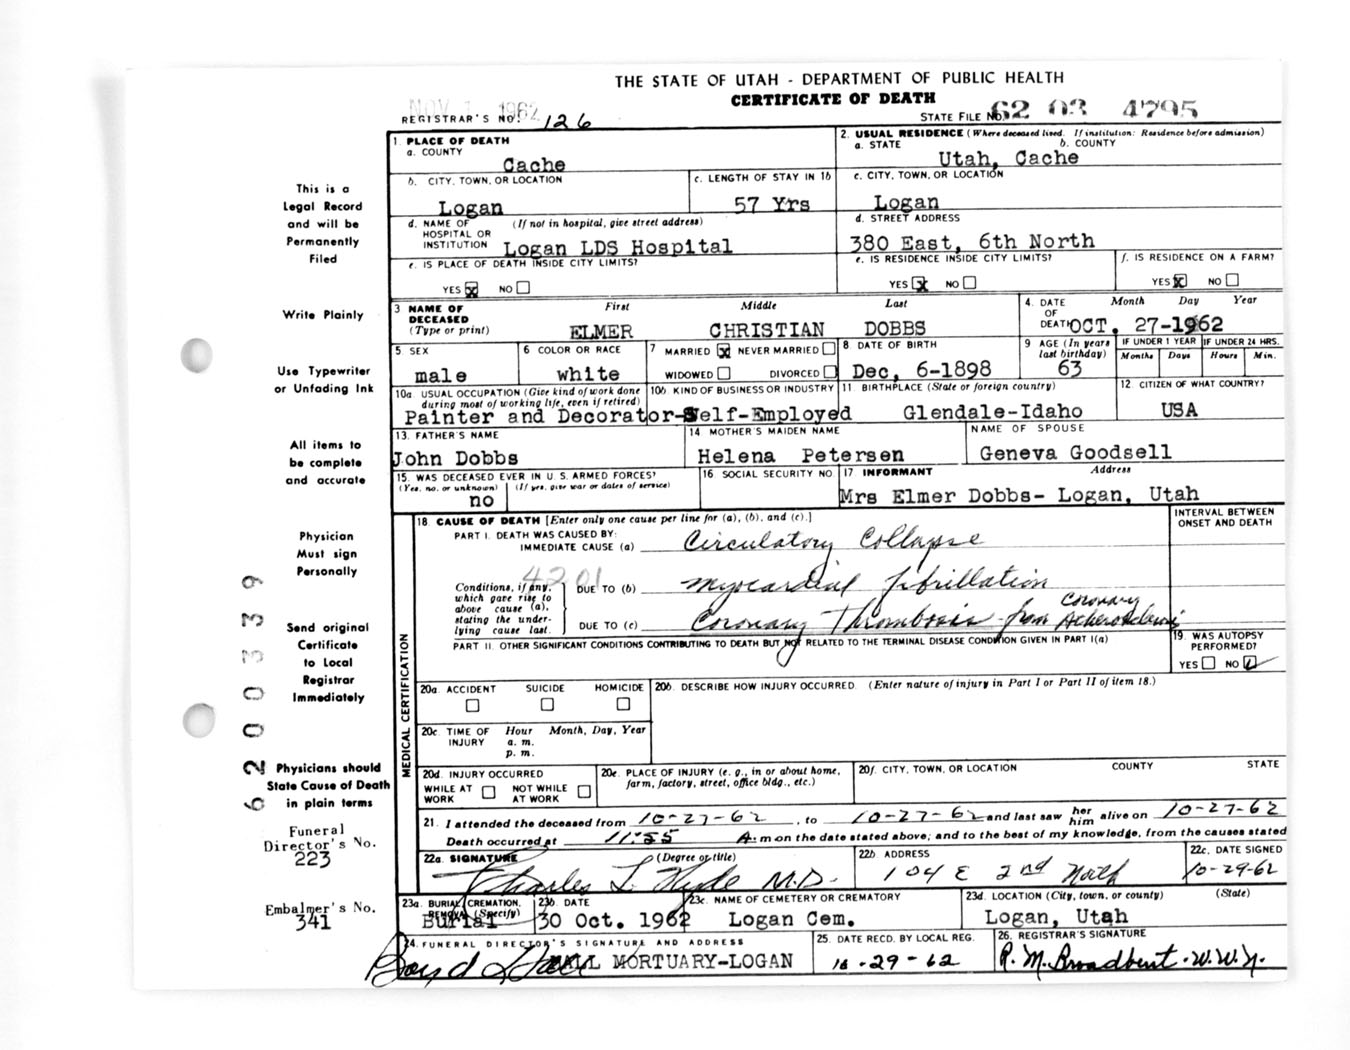 THE STATE OF UTAH - DEPARTMENT OF PUBLIC HEALTH
CERTIFICATE OF DEATH
NOV 1 1962
REGISTRAR'S NO. 126
STATE FILE NO. 62 03 4795
1. PLACE OF DEATH
a. COUNTY
Cache
2. USUAL RESIDENCE (Where deceased lived. If institution: Residence before admission)
a. STATE b. COUNTY
Utah, Cache
b. CITY, TOWN, OR LOCATION
Logan
c. LENGTH OF STAY IN 1b
57 Yrs
c. CITY, TOWN, OR LOCATION
Logan
d. NAME OF HOSPITAL OR INSTITUTION (If not in hospital, give street address)
Logan LDS Hospital
d. STREET ADDRESS
380 East, 6th North
e. IS PLACE OF DEATH INSIDE CITY LIMITS?
YES X NO
e. IS RESIDENCE INSIDE CITY LIMITS?
YES X NO
f. IS RESIDENCE ON A FARM?
YES X NO
3 NAME OF DECEASED (Type or print)
First Middle Last
ELMER CHRISTIAN DOBBS
4. DATE OF DEATH Month Day Year
OCT. 27-1962
5 SEX
male
6 COLOR OR RACE
white
7 MARRIED X NEVER MARRIED
WIDOWED DIVORCED
8 DATE OF BIRTH
Dec, 6-1898
9 AGE (In years last birthday)
63
IF UNDER 1 YEAR
Months Days
IF UNDER 24 HRS.
Hours Min.
10a. USUAL OCCUPATION (Give kind of work done during most of working life, even if retired)
10b. KIND OF BUSINESS OR INDUSTRY
Painter and Decorator-Self-Employed
11. BIRTHPLACE (State or foreign country)
Glendale-Idaho
12. CITIZEN OF WHAT COUNTRY?
USA
13. FATHER'S NAME
John Dobbs
14 MOTHER'S MAIDEN NAME
Helena Petersen
NAME OF SPOUSE
Geneva Goodsell
15. WAS DECEASED EVER IN U.S. ARMED FORCES?
(Yes, no, or unknown) (If yes, give war or dates of service)
no
16 SOCIAL SECURITY NO
17 INFORMANT Address
Mrs Elmer Dobbs- Logan, Utah
MEDICAL CERTIFICATION
18. CAUSE OF DEATH [Enter only one cause per line for (a), (b), and (c).]
INTERVAL BETWEEN ONSET AND DEATH
PART I. DEATH WAS CAUSED BY:
IMMEDIATE CAUSE (a) Circulatory Collapse
4201
Conditions, if any, which gave rise to above cause (a), stating the underlying cause last.
DUE TO (b) myocardial fibrillation
DUE TO (c) Coronary Thrombosis from Coronary
PART II. OTHER SIGNIFICANT CONDITIONS CONTRIBUTING TO DEATH BUT NOT RELATED TO THE TERMINAL DISEASE CONDITION GIVEN IN PART I(a)
19. WAS AUTOPSY PERFORMED?
YES NO
20a. ACCIDENT SUICIDE HOMICIDE
20b. DESCRIBE HOW INJURY OCCURRED. (Enter nature of injury in Part I or Part II of item 18.)
20c. TIME OF INJURY Hour Month, Day, Year
a. m.
p. m.
20d. INJURY OCCURRED
WHILE AT WORK NOT WHILE AT WORK
20e. PLACE OF INJURY (e. g., in or about home, farm, factory, street, office bldg., etc.)
20f. CITY, TOWN, OR LOCATION COUNTY STATE
21. I attended the deceased from 10-27-62, to 10-27-62 and last saw her him alive on 10-27-62
Death occurred at 11:55 A.m on the date stated above; and to the best of my knowledge, from the causes stated
22a. SIGNATURE (Degree or title)
Charles L. Hyde M.D.
22b. ADDRESS
104 E 2nd North
22c. DATE SIGNED
10-29-62
23a. BURIAL, CREMATION, REMOVAL (Specify)
Burial
23b. DATE
30 Oct. 1962
23c. NAME OF CEMETERY OR CREMATORY
Logan Cem.
23d. LOCATION (City, town, or county) (State)
Logan, Utah
24. FUNERAL DIRECTOR'S SIGNATURE AND ADDRESS
MORTUARY-LOGAN
25. DATE RECD. BY LOCAL REG.
10-29-62
26. REGISTRAR'S SIGNATURE
R. M. Broadbent. W.W.N.
This is a
Legal Record
and will be
Permanently
Filed
Write Plainly
Use Typewriter
or Unfading Ink
All items to
be complete
and accurate
Physician
Must sign
Personally
Send original
Certificate
to Local
Registrar
Immediately
Physicians should
State Cause of Death
in plain terms
Funeral
Director's No.
223
Embalmer's No.
341
62 00339